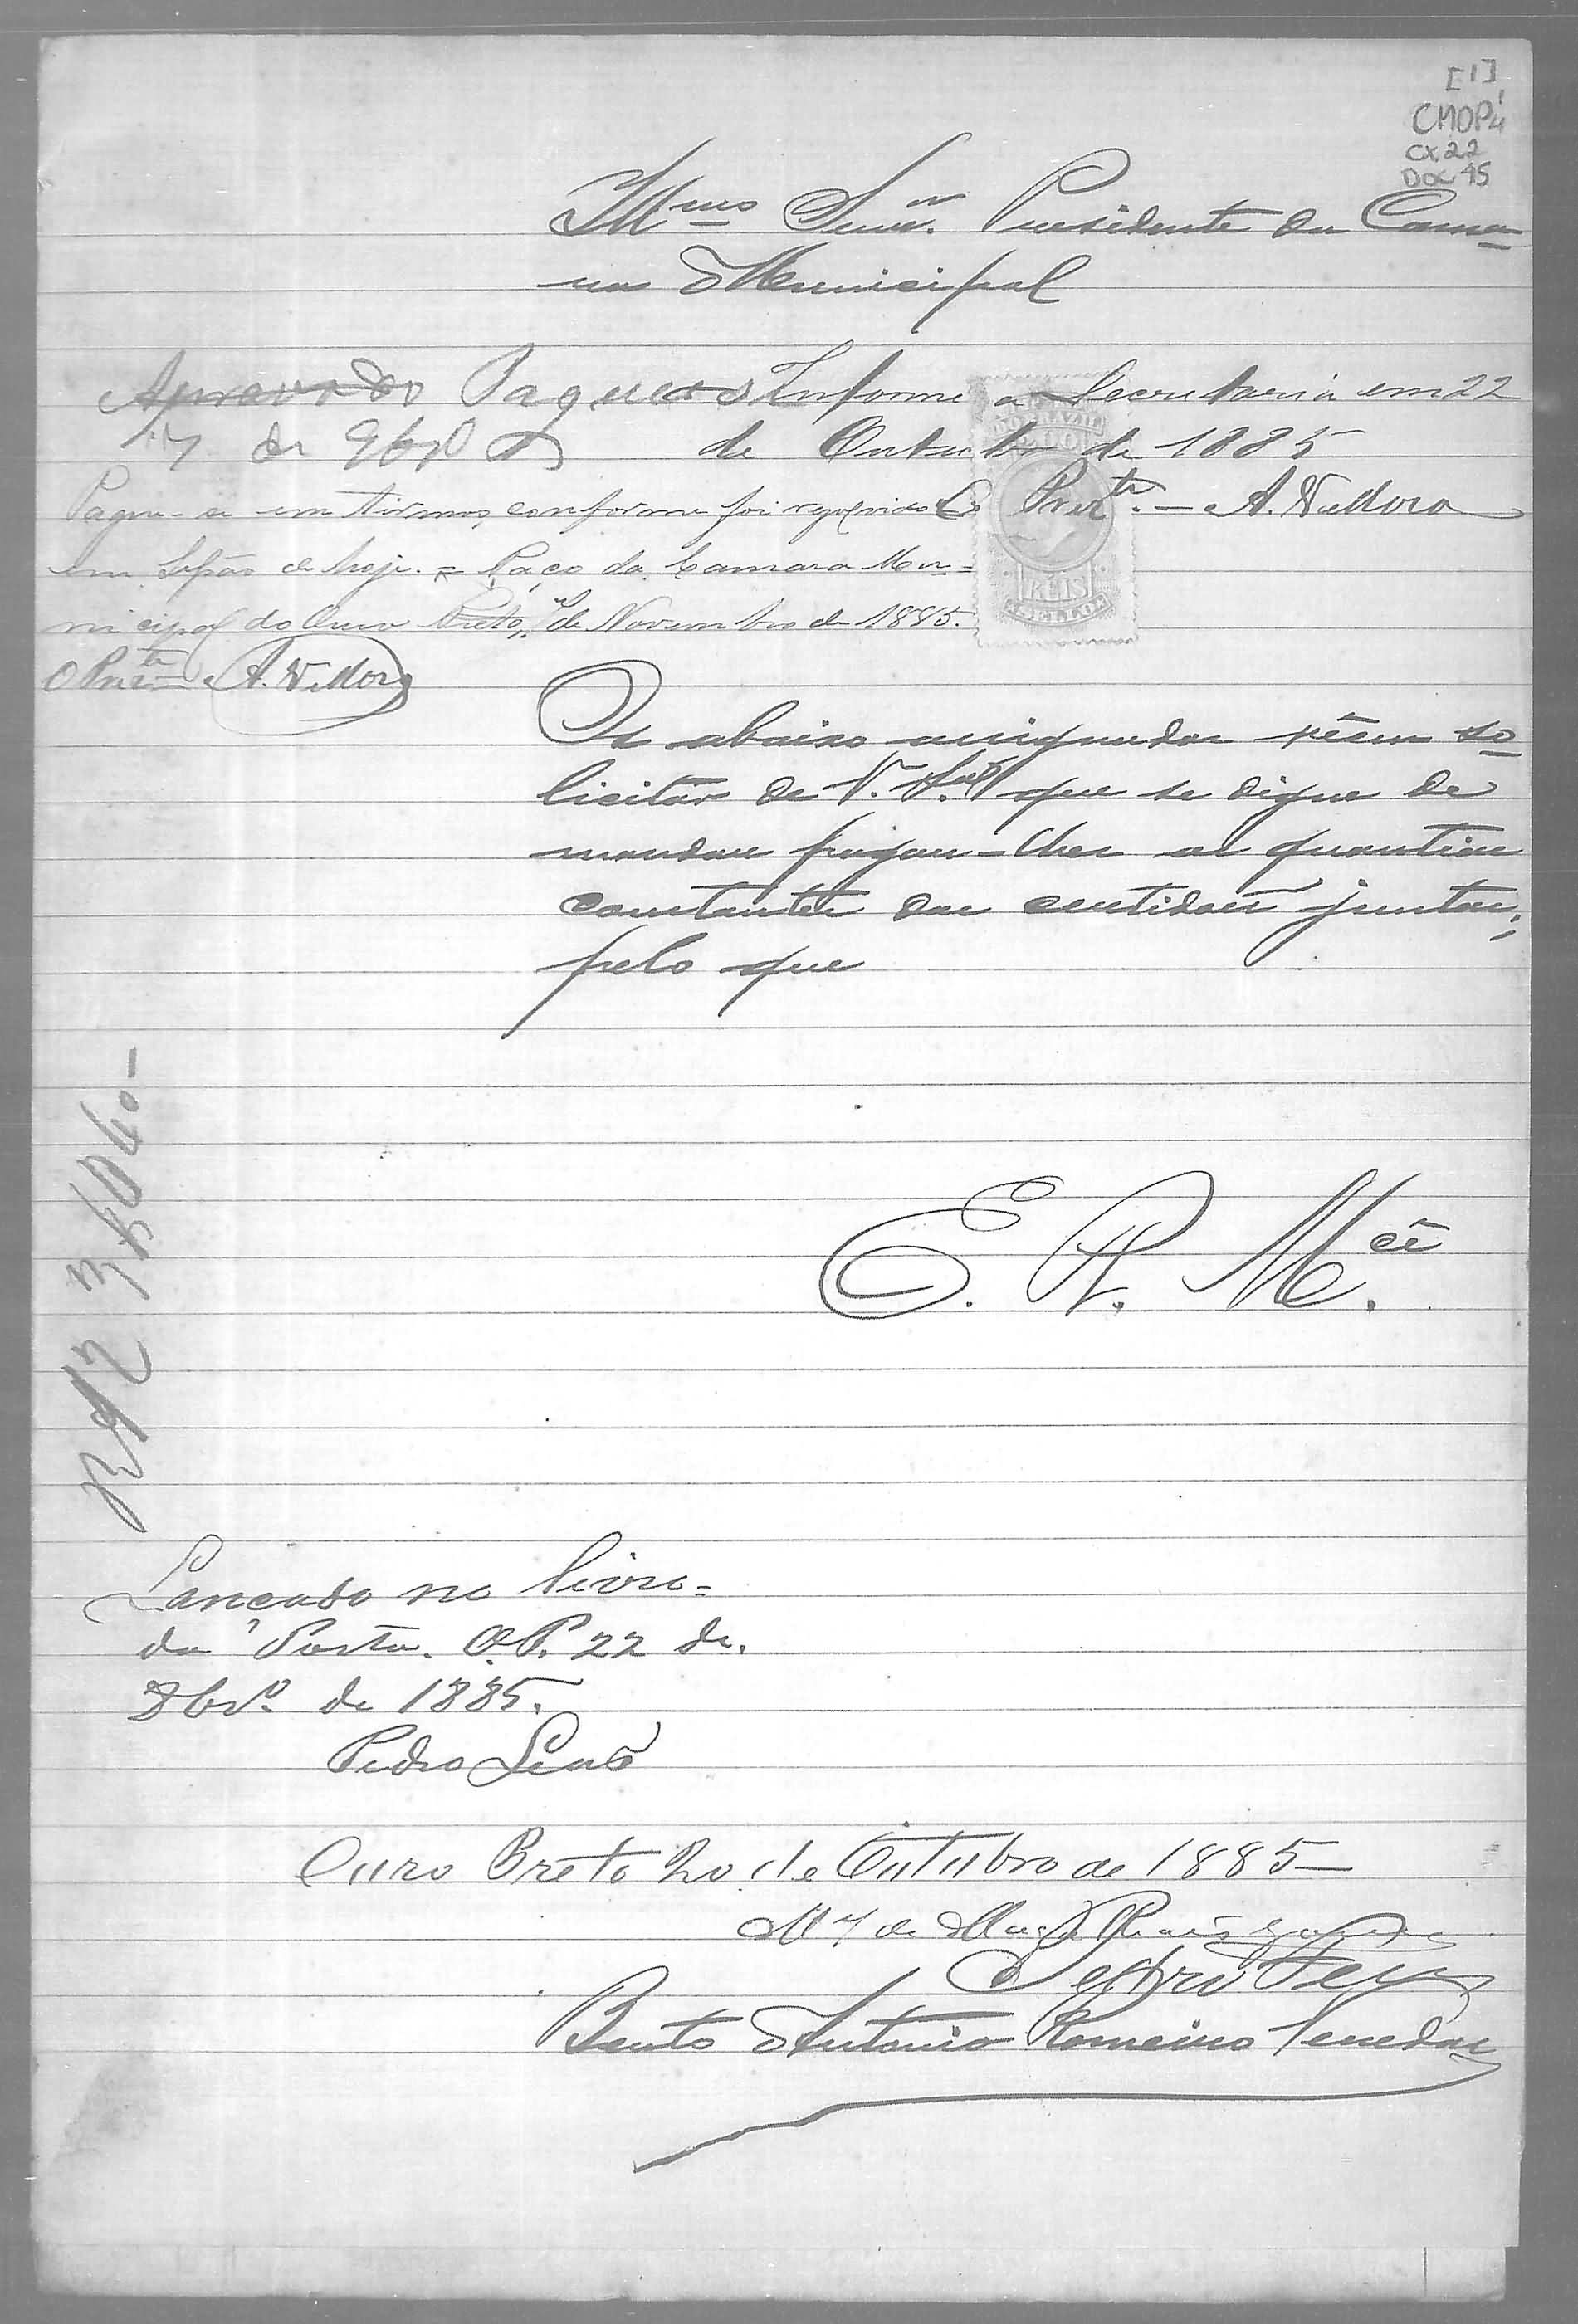 [1]
CMOP
CX 22
DOC 45
Illmo Senr. Presidente da Cama-
ra Municipal
Aprovado Pague-se
7 de 9bro
Informe a Secretaria em 22
de Outubro de 1885
O Prezte. - A.
Pague-se em termos, conforme foi resolvido
em Sessão de hoje. = Paço da Camara Mu-
nicipal do Ouro Preto, de Novembro de 1885.
O Prezte - A.
DO BRAZIL
200
REIS
SELLO
Os abaixo assignados vêem so-
licitar de V. Sa. que se digne de
mandar pagar-lhes as quantias
constantes das certidões juntas;
pelo que
E. R. Mcê.
Lancado no livro
da Porta. O. P. 22 de
8bro. de 1885.
Pedro Leão
Ouro Preto 20 de Outubro de 1885
Bento Antonio Romeiro Veredas